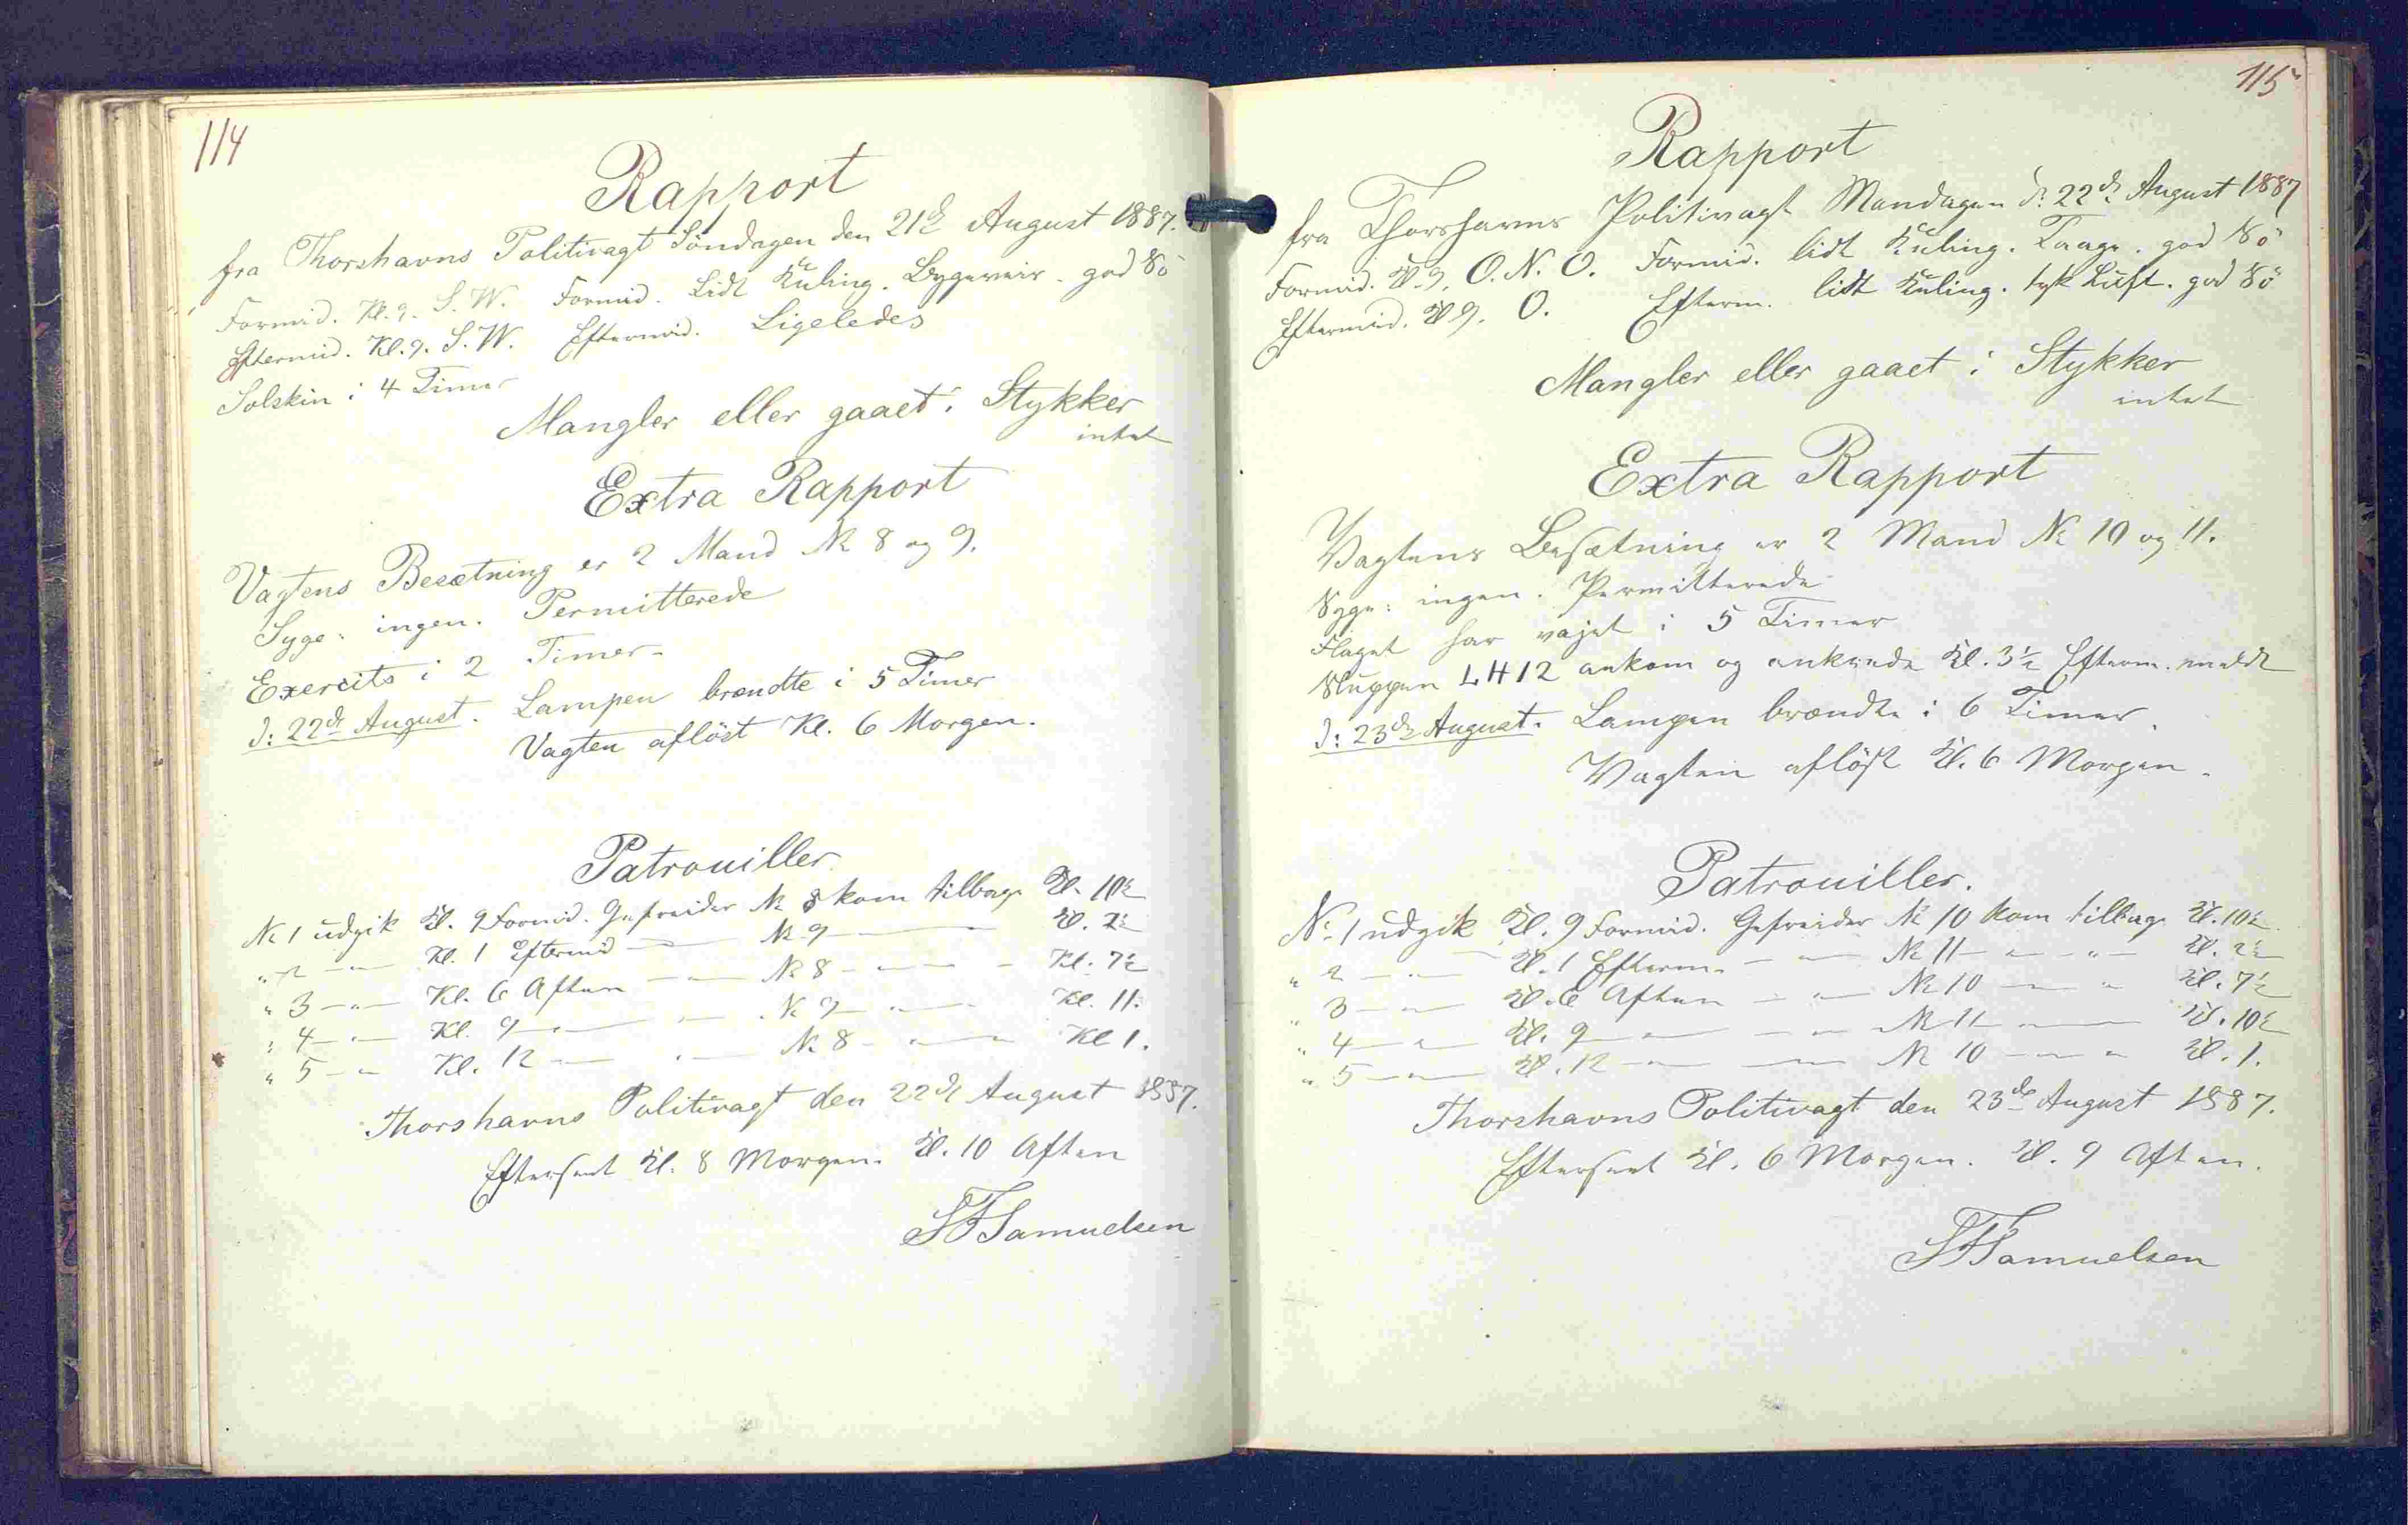 114
Rapport
fra Thorshavns Politivagt Söndagen den 21de August 1887.
Formid. Kl. 9. S. W. Formid. Lidt Kuling. Bygeveir. god Sö
Eftermid. Kl. 9. S. W. Eftermid. Ligeledes
Solskin i 4 Timer
Mangler eller gaaet i Stykker
intet
Extra Rapport
Vagtens Besætning er 2 Mand No 8 og 9.
Syge: ingen. Permitterede
Exercits i 2 Timer
d: 22de August. Lampen brændte i 5 Timer
Vagten aflöst Kl. 6 Morgen.
Patrouiller.
No 1 udgik Kl. 9 Formid. Gefreider No 8 kom tilbage Kl. 10½
" 2 — " — Kl. 1 Eftermid — " — No 9 — Kl. 2½
" 3 — " — Kl. 6 Aften — " — No 8 — " — Kl. 7½
" 4 — " — Kl. 9 — " — " — No 9 — " — Kl. 11.
" 5 — " Kl. 12 — " — " — No 8 — " — " Kl 1.
Thorshavns Politivagt den 22de August 1887.
Efterseet Kl. 8 Morgen. Kl. 10 Aften
SFSamuelsen
115
Rapport
fra Thorshavns Politivagt Mandagen d: 22de August 1887
Formid. Kl. 9. O. N. O. Formid. lidt Kuling. Taage. god Sö
Eftermid. Kl 9. O. Efterm. lidt Kuling. tyk Luft. god Sö
Mangler eller gaaet i Stykker
intet
Extra Rapport
Vagtens Besætning er 2 Mand No 10 og 11.
Syge: ingen. Permitterede
Flaget har vajet i 5 Timer
Sluppen LH12 ankom og ankrede Kl. 3½ Efterm. meldt
d: 23de August. Lampen brændte i 6 Timer.
Vagten aflöst Kl. 6 Morgen.
Patrouiller.
No. 1 udgik Kl. 9 Formid. Gefreider No 10 kom tilbage Kl. 10½.
" 2 — " — Kl. 1 Efterm. — " — No 11 — " — " — Kl. 2½
" 3 — " — Kl. 6 Aften — " — No 10 — " — " Kl. 7½
" 4 — " — Kl. 9 — " — " — No 11 — " — Kl. 10½
" 5 — " — Kl. 12 — " — " — No 10 — " — " Kl. 1.
Thorshavns Politivagt den 23de August 1887.
Efterseet Kl. 6 Morgen. Kl. 9 Aften.
SFSamuelsen